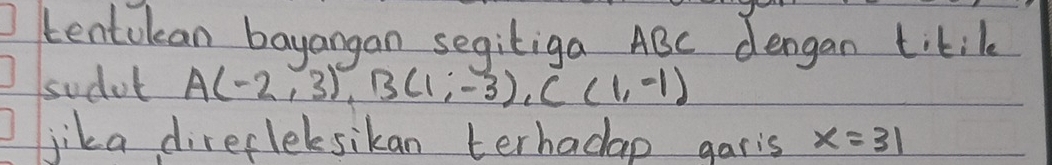 tentukan bayangan segitiga ABC dengan titik
sudut A(-2,3), B(1,-3), C(1,-1)
jika direfleksikan terhadap garis x=31